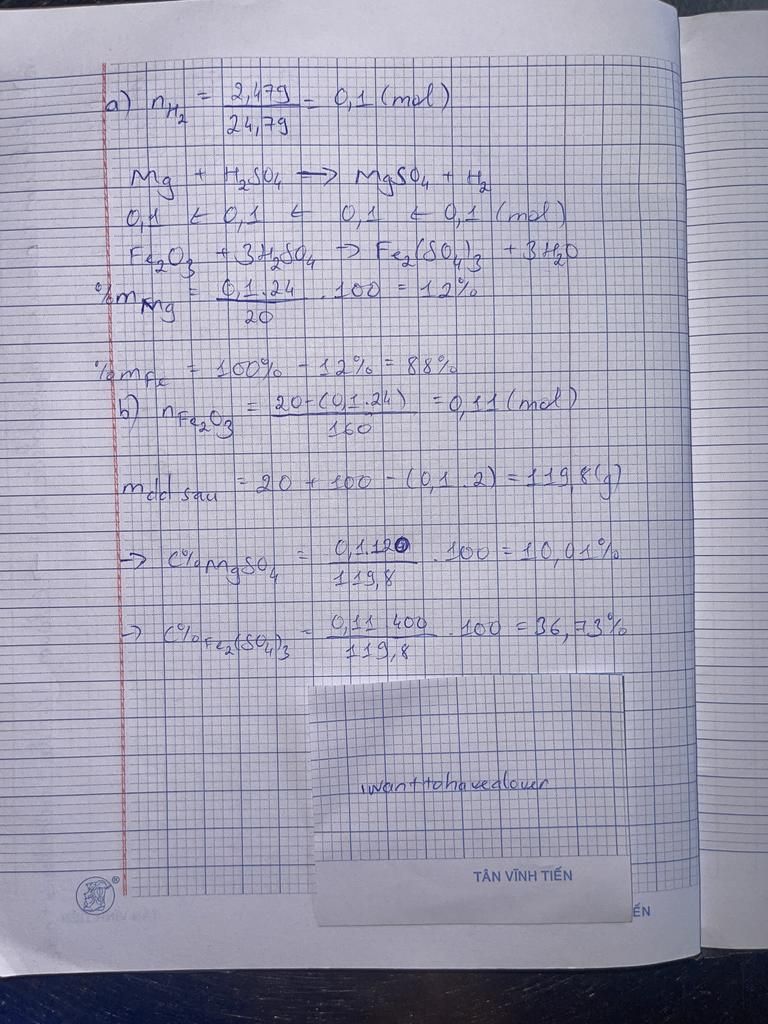 a) n H₂ = 2,479 / 24,79 = 0,1 (mol)
Mg + H₂SO₄ → MgSO₄ + H₂
0,1 ← 0,1 ← 0,1 ← 0,1 (mol)
Fe₂O₃ + 3H₂SO₄ → Fe₂(SO₄)₃ + 3H₂O
%m Mg = 0,1.24 / 20 . 100 = 12%
%m Fe = 100% - 12% = 88%
b) n Fe₂O₃ = 20-(0,1.24) / 160 = 0,11 (mol)
m dd sau = 20 + 100 - (0,1.2) = 119,8(g)
→ C% MgSO₄ = 0,1.120 / 119,8 . 100 = 10,01%
→ C% Fe₂(SO₄)₃ = 0,11 400 / 119,8 . 100 = 36,73%
iwanttohavealover
TÂN VĨNH TIẾN
ẾN